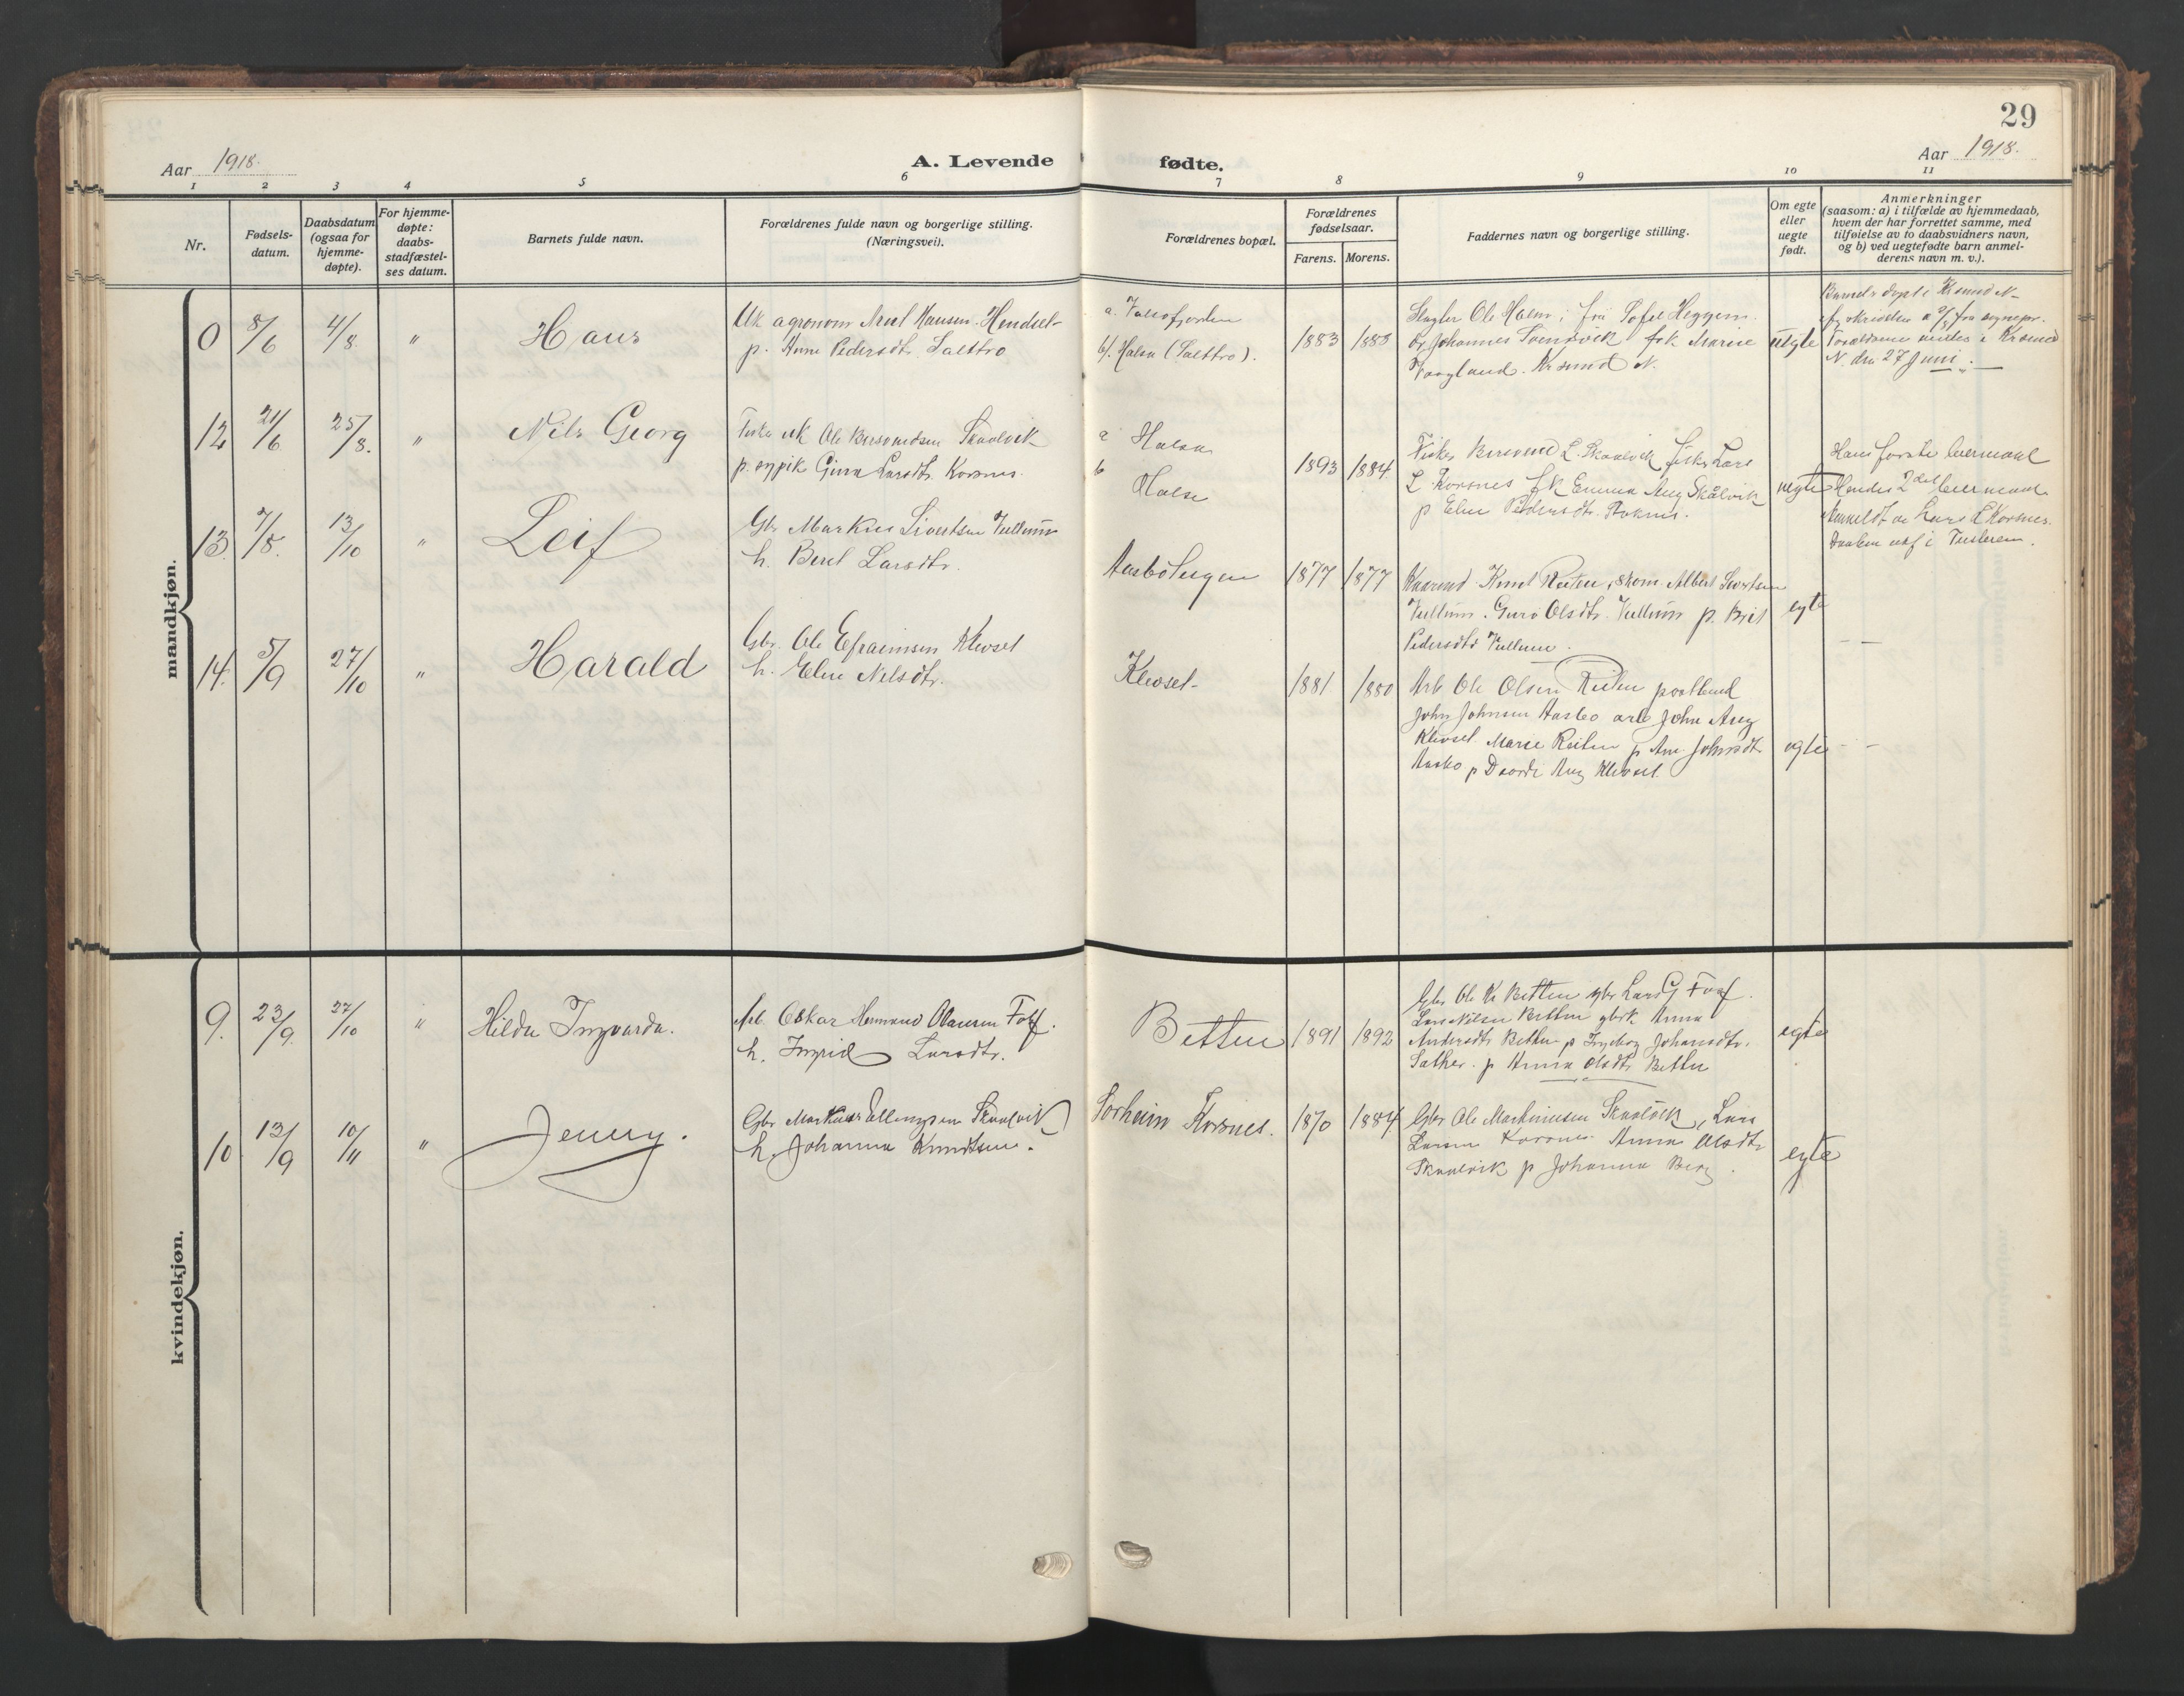 29
Aar 1918.
A. Levende fødte.
Aar 1918.
1 2 3 4 5 6 7 8 9 10 11
Nr.
Fødsels-
datum.
Daabsdatum
(ogsaa for
hjemme-
døpte).
For hjemme-
døpte:
daabs-
stadfæstel-
ses datum.
Barnets fulde navn.
Forældrenes fulde navn og borgerlige stilling.
(Næringsvei).
Forældrenes bopæl.
Forældrenes
fødselsaar.
Farens. Morens.
Faddernes navn og borgerlige stilling.
Om egte
eller
uegte
født.
Anmerkninger
(saasom: a) i tilfælde av hjemmedaab,
hvem der har forrettet samme, med
tilføielse av to daabsvidners navn,
og b) ved uegtefødte barn anmel-
derens navn m. v.).
mandkjøn.
0 8/6 4/8 " Hans
Uk agronom Hansen Hendset
p. Anne Pedersdtr.
a. Valsøfjorden
b/. Halsa
1883
Ole Halm fru Sofie Heggem
og Johannes frk Marie
Vaagland. Krsund N.
uegte
døpt i Krsund N
i Krsund
N. den 27 Juni.
12 21/6 25/8. " Nils Georg
uk Ole Skaalvik
p. sypik Larsdtr. Korsnes
a Halsa
b Halse
1893 1884.
Fisker L. Skaalvik fisker Lars
L. Korsnes fk Emma Aug Skålvik
p Elen Pedersdtr.
uegte
Hans første leiermaal
Hendes 2det leiermaal
Anmeldt av Lars L Korsnes.
Daaben utf i Tustern.
13. 7/8. 13/10 " Leif
Gbr Markus Sivertsen Vullum
h. Beret Larsdtr.
1877 1877
Knut Reiten, skom. Albert Sivertsen
Vullum. Guro Olsdtr. Vullum p. Brit
Pedersdtr Vullum.
egte
— —
14. 5/9 27/10 " Harald
Gbr. Ole Efraimsen Klevset
h. Elen Nilsdtr.
Klevset
1881 1880
Arb. Ole Olsen Reiten
John Johnsen Aasbø arb John Aug
Klevset. Marie Reiten p Ane Johnsdtr
Aasbø p Aug Klevset
egte
— —
kvindekjøn.
9. 23/9. 27/10 " Hilda Ingvarda.
Arb. Oskar Hermand Olausen
h. Ingrid Larsdtr.
Betten
1891 1892
Gbr Ole Kr Betten gbr Lars
Lars Nilsen Betten gbrk Anna
Andersdtr Betten p Ingeborg Johansdtr.
Sæther. p Anna Olsdtr Betten
egte
10 13/9 10/11 " Jenny.
Gbr Markus Ellingsen Skaalvik
h. Johanna Knudtsen.
Sorheim Korsnes.
1870 1884
Gbr Ole Skaalvik, Lars
Larsen Korsnes Anna Olsdtr
Skaalvik p Johanna Berg.
egte